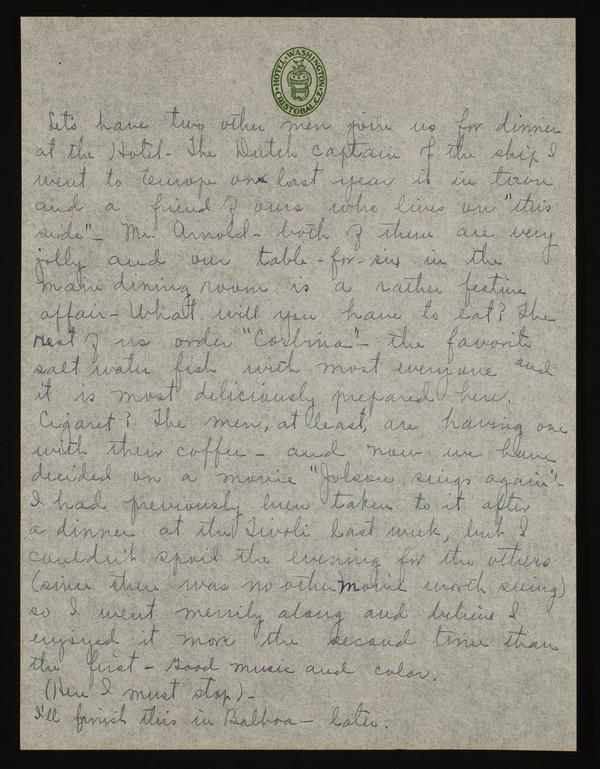 HOTEL WASHINGTON
CRISTOBAL C.Z.
Let's have two other men join us for dinner
at the Hotel - The Dutch captain of the ship I
went to Europe on last year is in town
and a friend of ours who lives on "this
side" - Mr. Arnold - both of them are very
jolly and our table-for-six in the
main dining room is a rather festive
affair - What will you have to eat? The
rest of us order "Corbina" - the favorite
salt water fish with most everyone and
it is most deliciously prepared here.
Cigaret? The men, at least, are having one
with their coffee - and now we have
decided on a movie "Jolson sings again" -
I had previously been taken to it after
a dinner at the Tivoli last week, but I
couldn't spoil the evening for the others
(since there was no other movie worth seeing)
so I went merrily along and believe I
enjoyed it more the second time than
the first - Good music and color.
(Here I must stop) -
I'll finish this in Balboa - later.